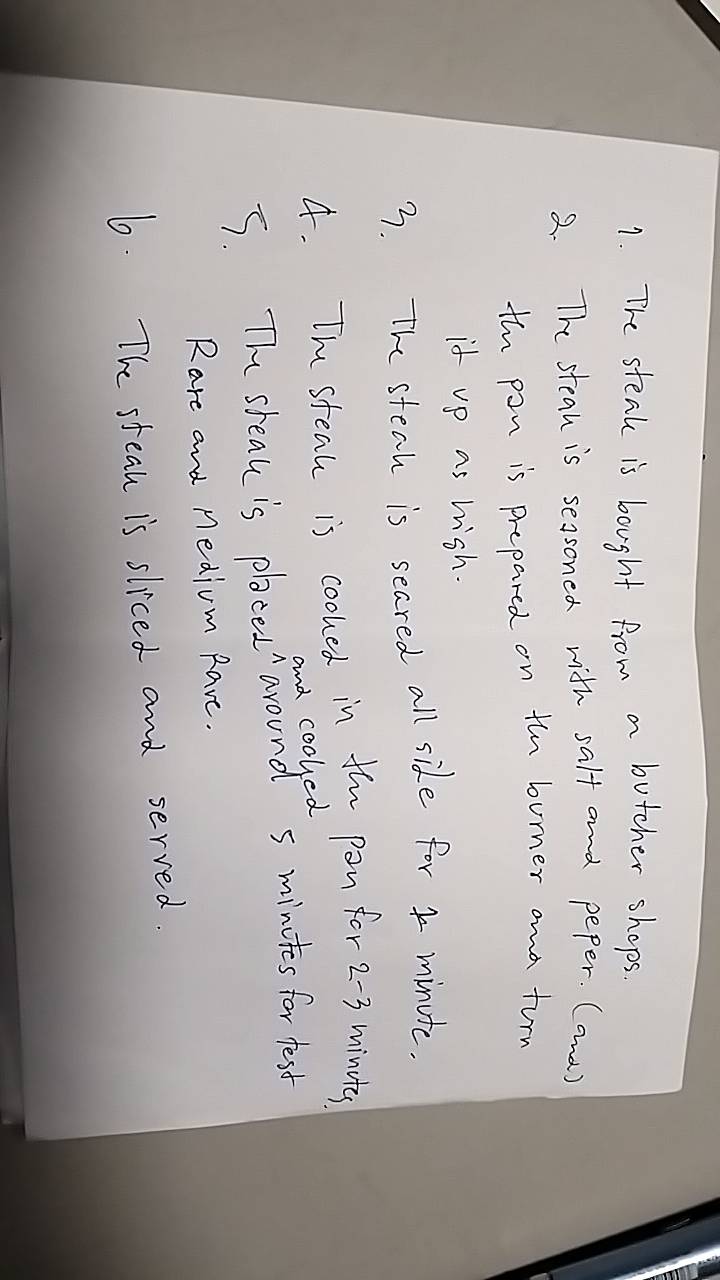 1. The steak is bought from a butcher shops.
2. The steak is seasoned with salt and peper. (and)
the pan is prepared on the burner and turn
it up as high.
3. The steak is seared all side for 1 minute.
4. The steak is cooked in the pan for 2-3 minutes.
and cooked
5. The steak is placed ^ around 5 minutes for test
Rare and Medium Rare.
6. The steak is sliced and served.